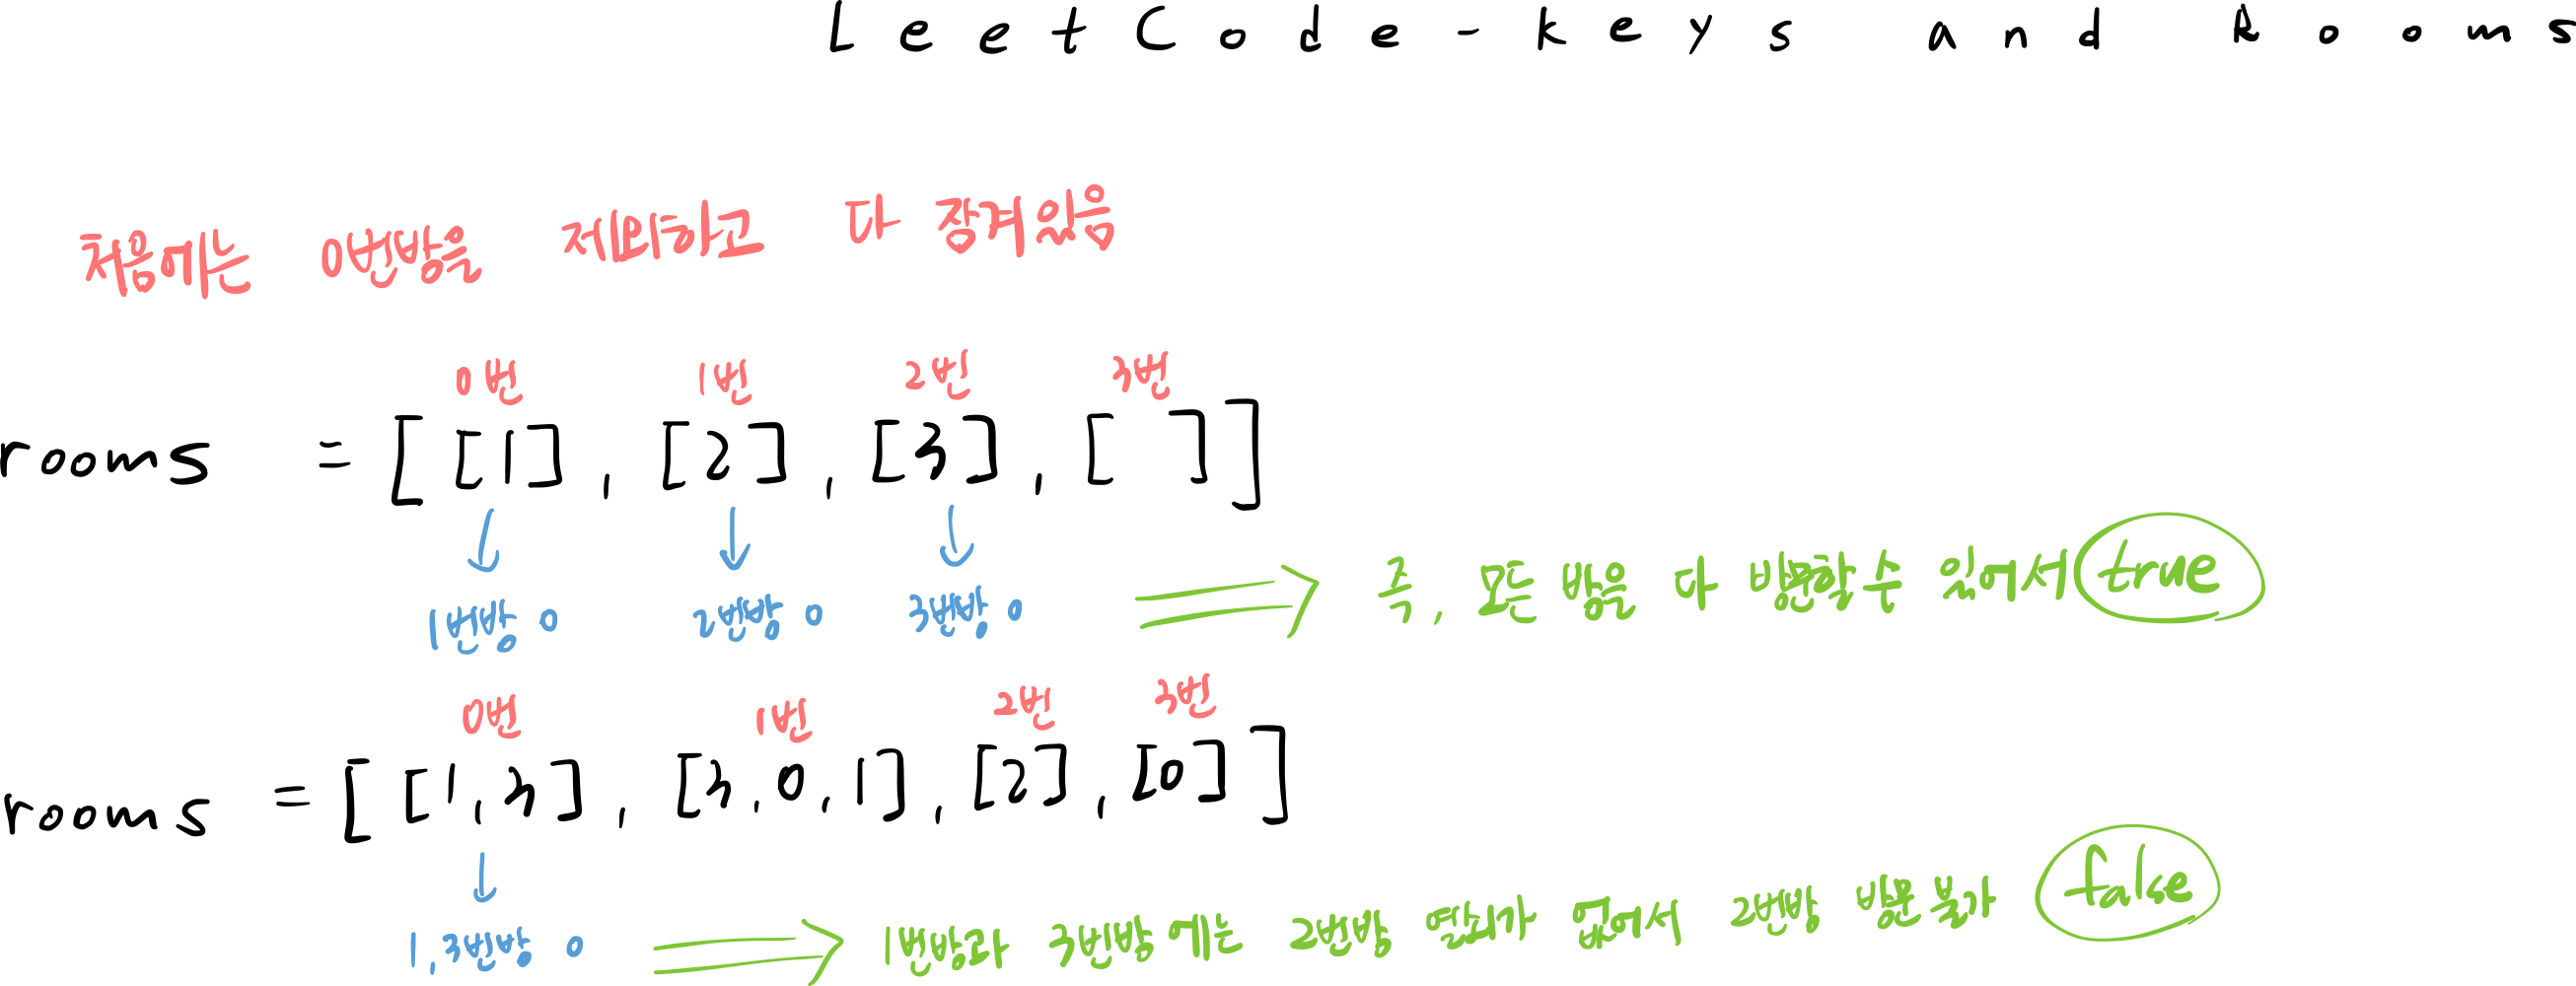 LeetCode-keys and Rooms
처음에는 0번방을 제외하고 다 잠겨있음
0번 1번 2번 3번
rooms = [ [1], [2], [3], [ ] ]
1번방 0 2번방 0 3번방 0 즉, 모든 방을 다 방문할 수 있어서 true
0번 1번 2번 3번
rooms = [ [1,3], [3,0,1], [2], [0] ]
1,3번방 0 1번방과 3번방에는 2번방 열쇠가 없어서 2번방 방문불가 false